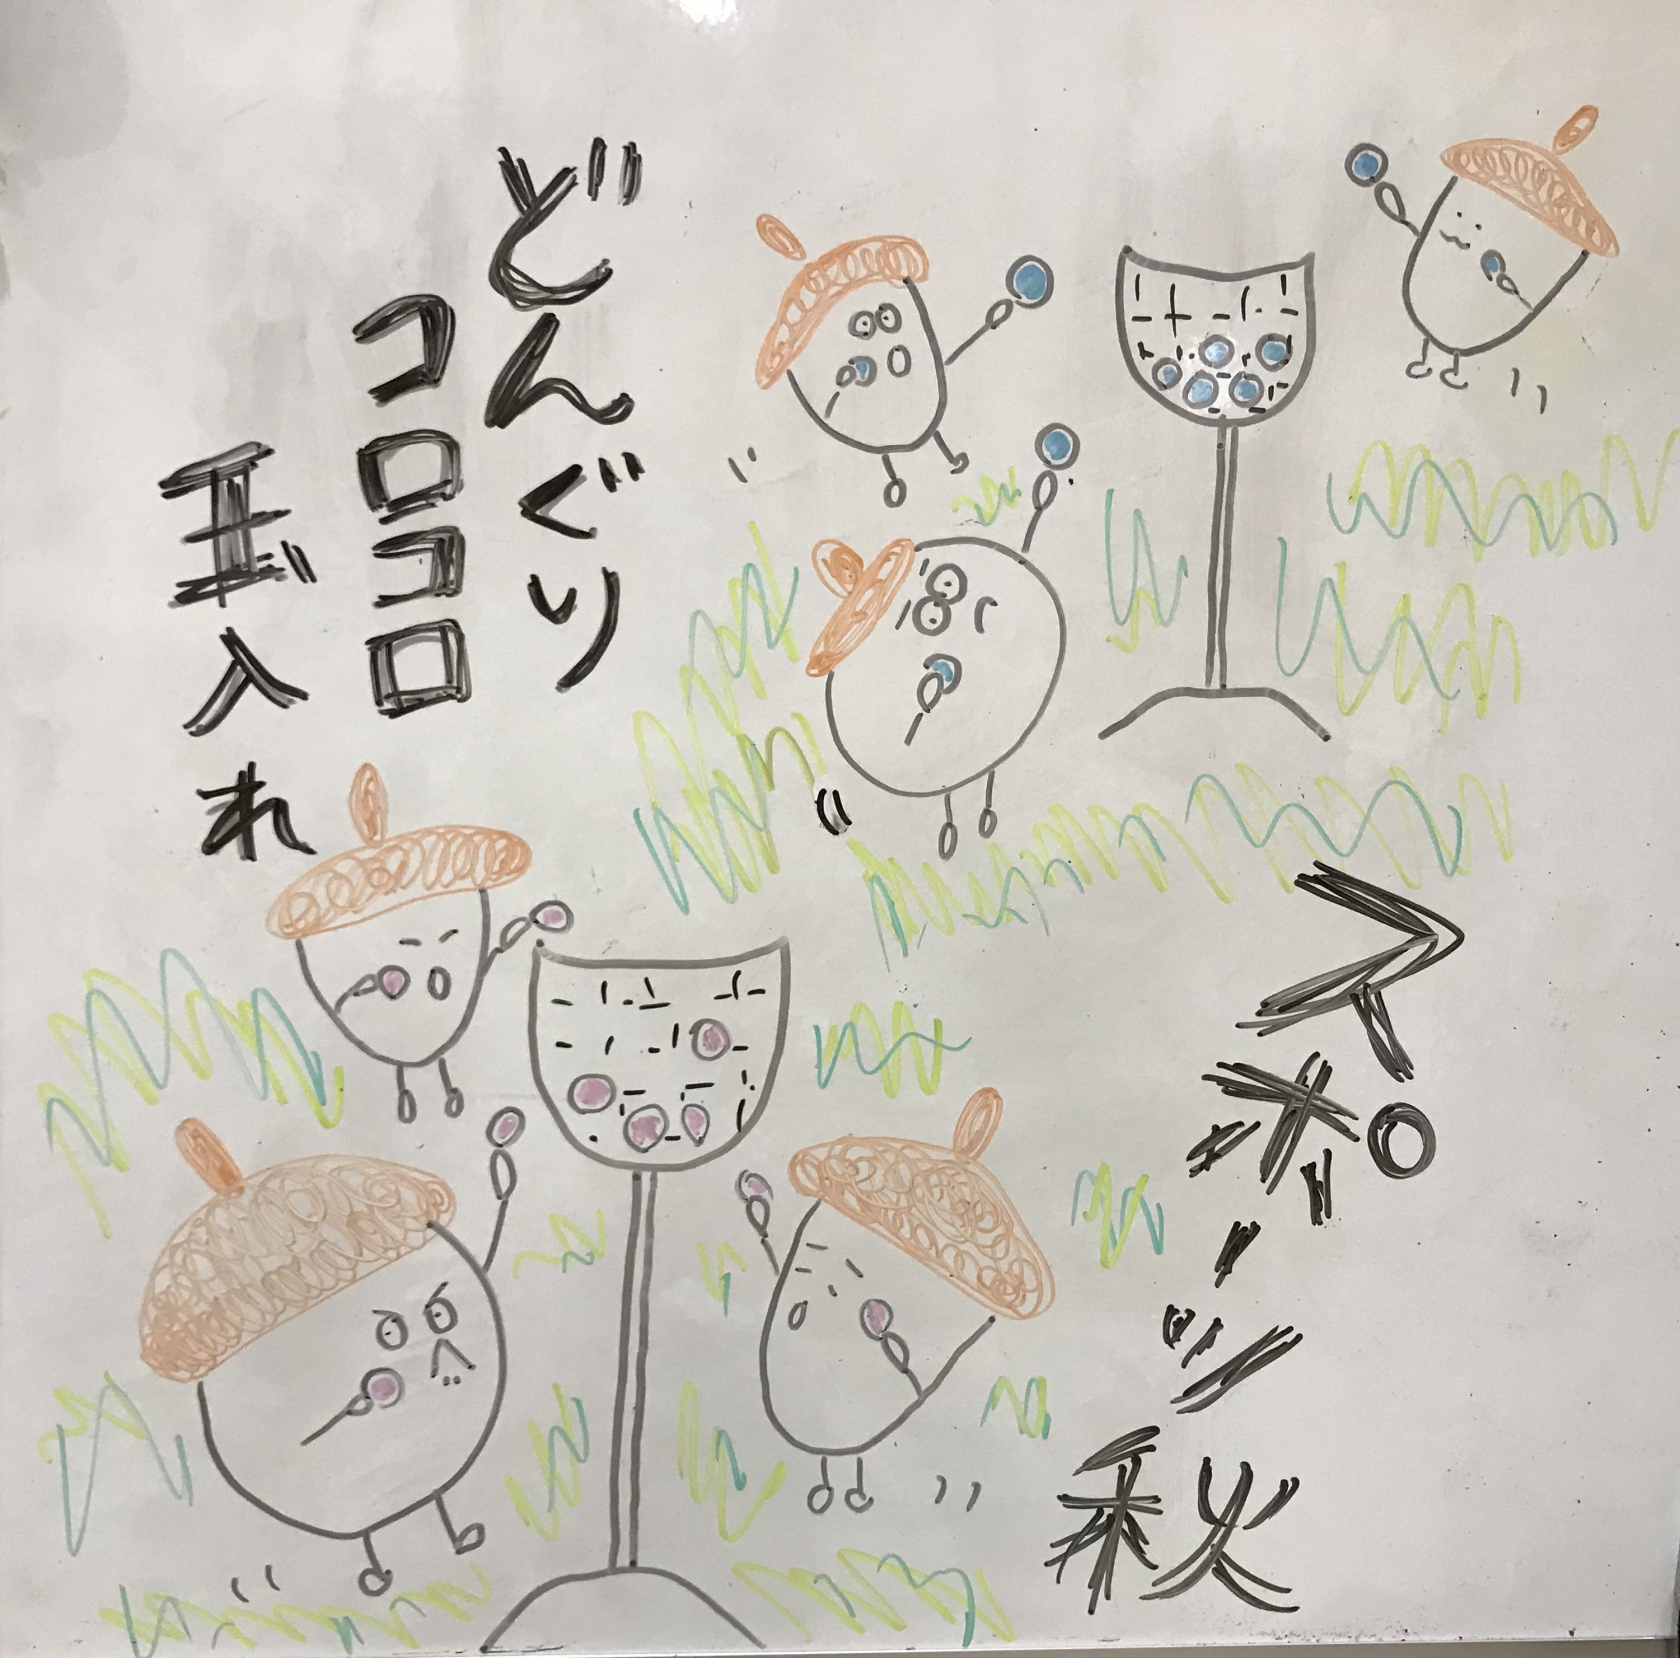 どんぐり
コロコロ
玉入れ
スポーツ秋